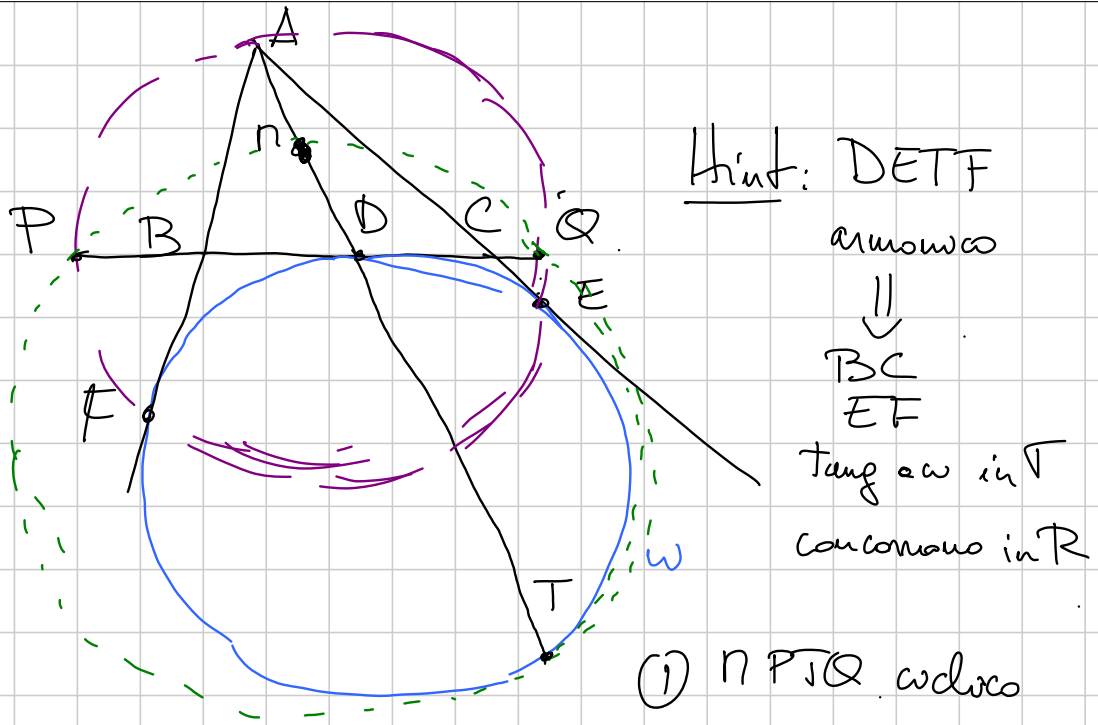 A
n
P B D C Q
E
F
T
ω
Hint: DETF
armonico
⇓
BC
EF
tang a ω in T
concorrono in R
① n PTQ ciclico